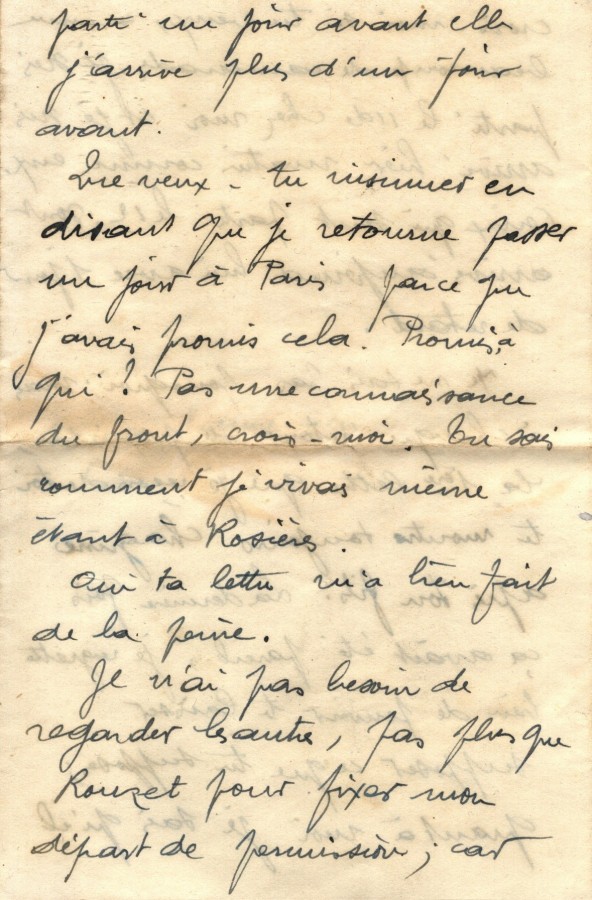 parti un jour avant elle
j'arrive plus d'un jour
avant.
Que veux-tu insinuer en
disant que je retourne passer
un jour à Paris parce que
j'avais promis cela. Promis, à
qui ! Pas une connaissance
du front, crois-moi. Tu sais
comment je vivais même
étant à Rosières.
Oui ta lettre m'a bien fait
de la peine.
Je n'ai pas besoin de
regarder les autres, pas plus que
Rouzet pour fixer mon
départ de permission ; car